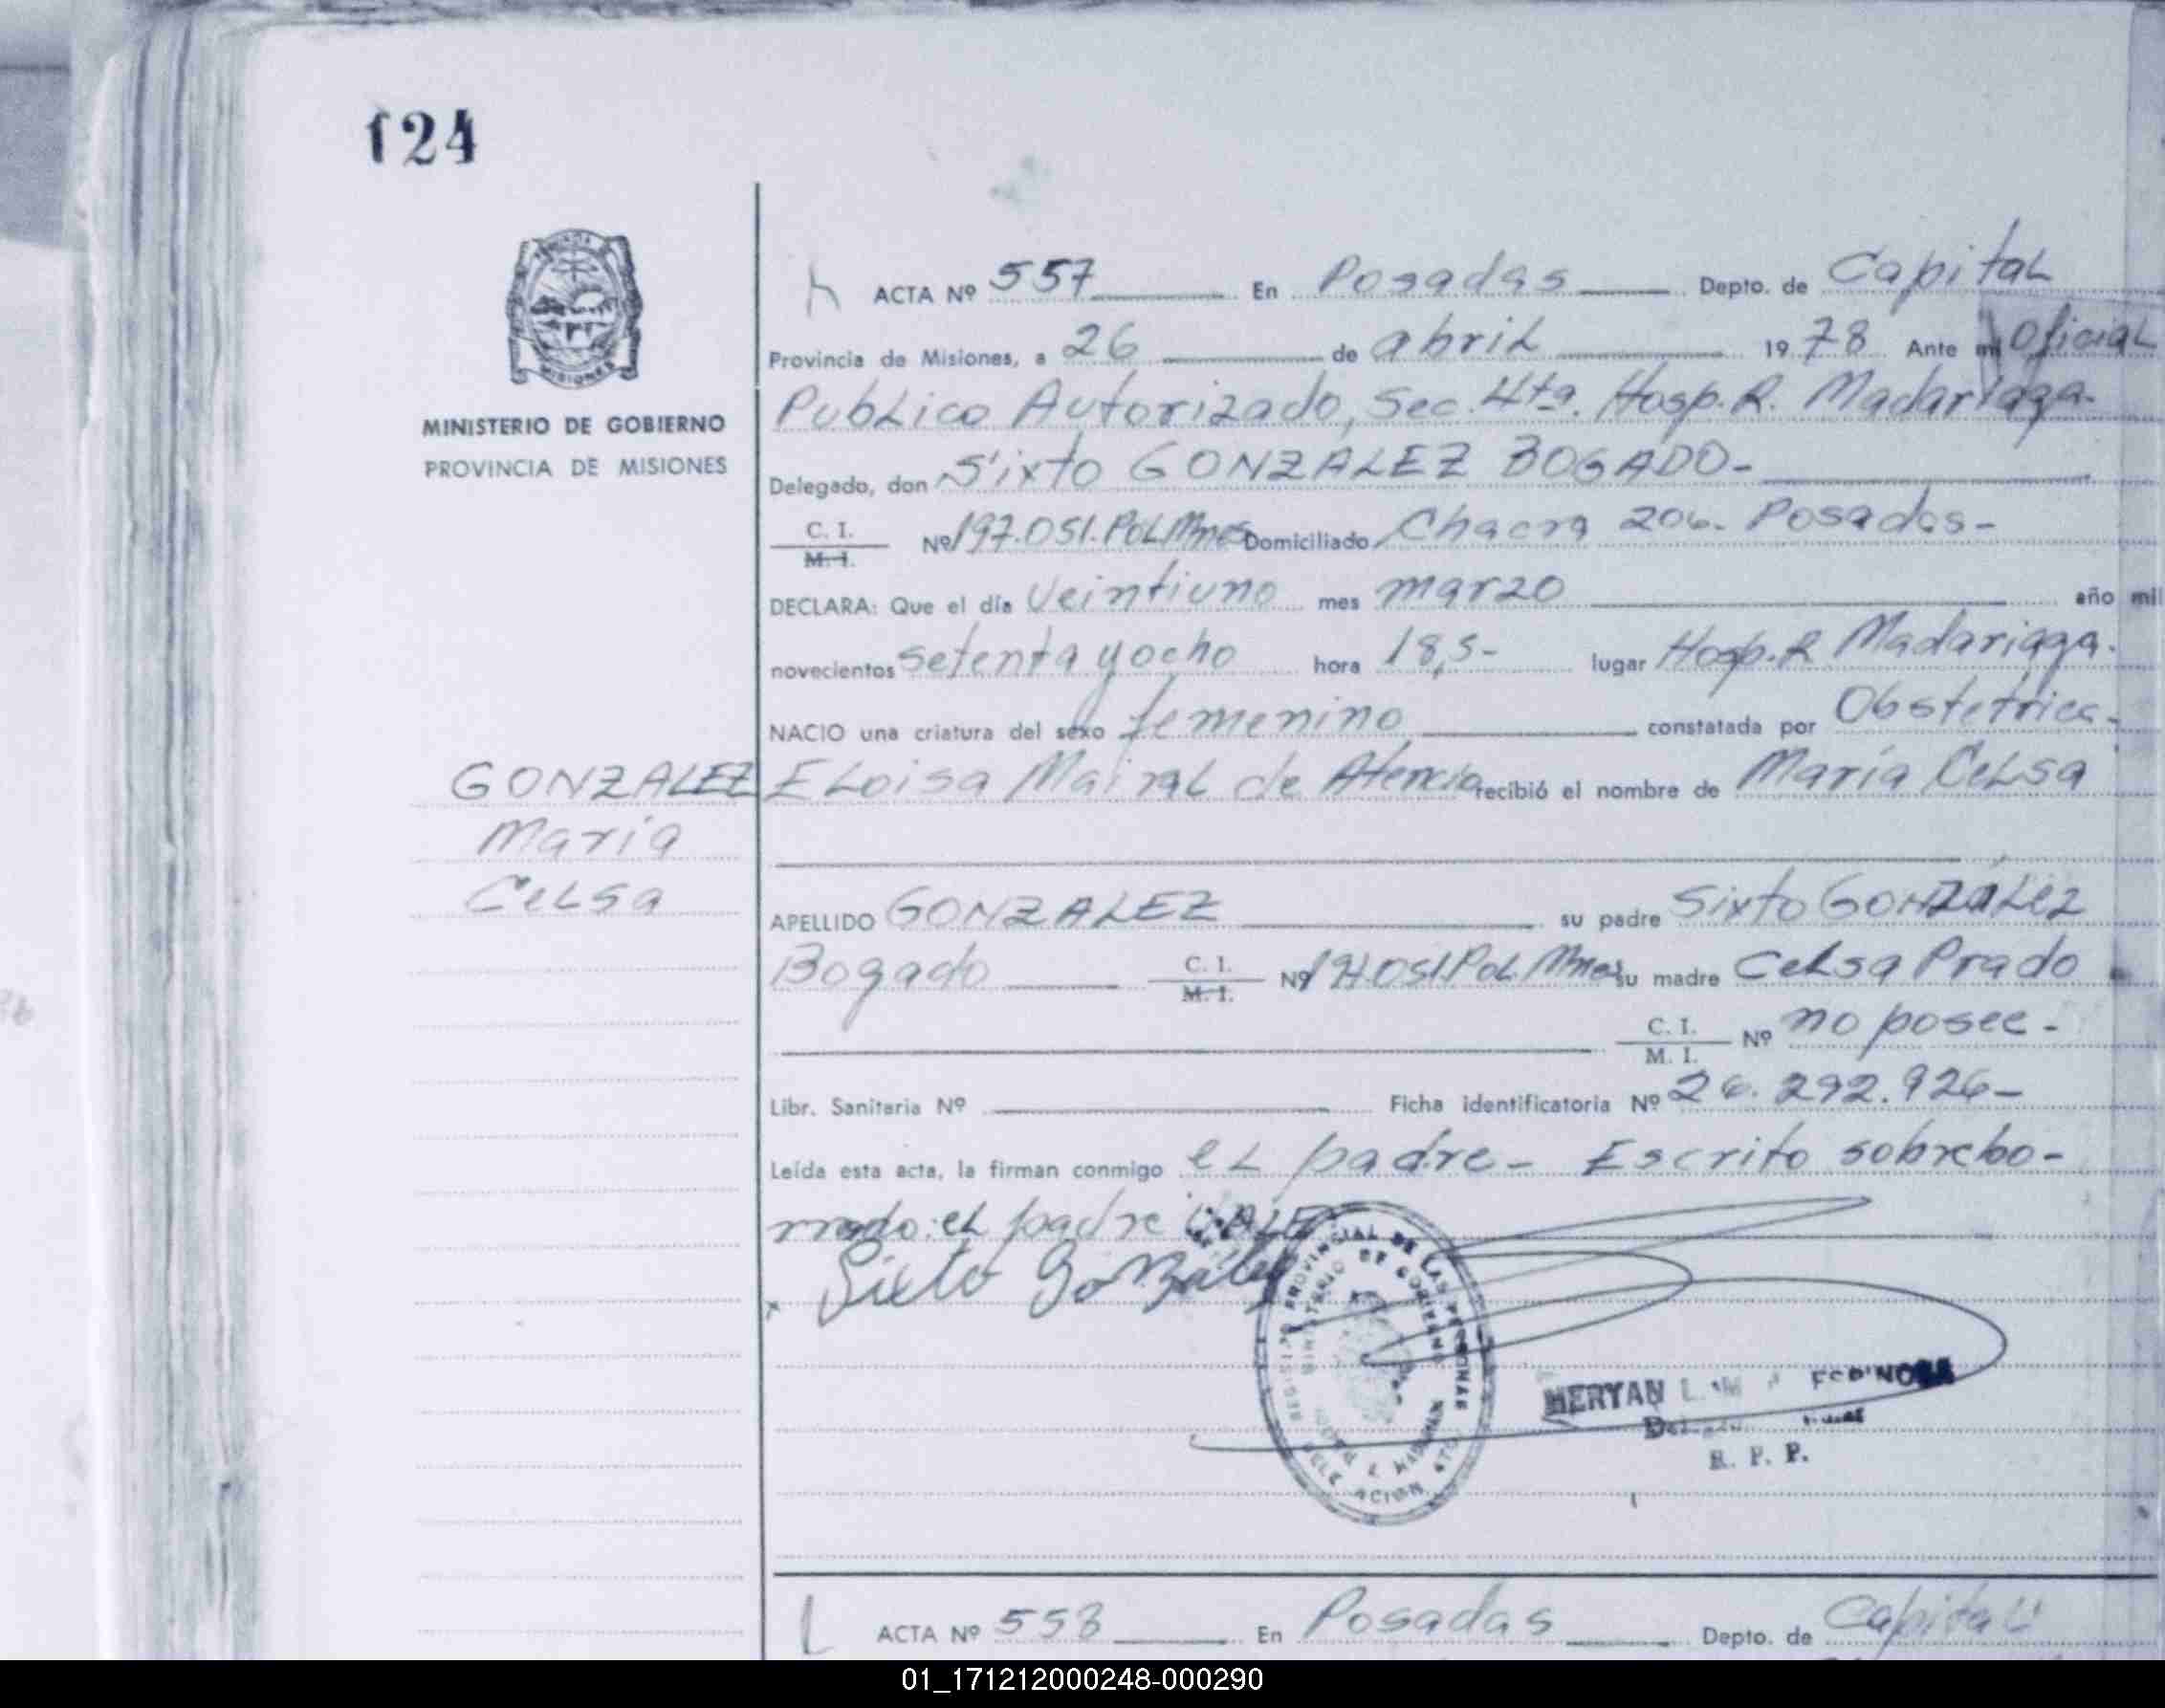 124
MINISTERIO DE GOBIERNO
PROVINCIA DE MISIONES
ACTA Nº 557 En Posadas Depto. de Capital
Provincia de Misiones, a 26 de abril 1978 Ante mí Oficial
Publico Autorizado, Sec. 4ta. Hosp. R. Madariaga.
Delegado, don Sixto GONZALEZ BOGADO-
C. I.
M. I. Nº 197.051.Pol.Mnes Domiciliado Chacra 206. Posadas-
DECLARA: Que el día Veintiuno mes marzo año mil
novecientos setenta y ocho hora 18,5- lugar Hosp. R Madariaga.
NACIO una criatura del sexo femenino constatada por Obstetrica-
GONZALEZ Eloisa Mairal de Atencio recibió el nombre de María Celsa
Maria
Celsa
APELLIDO GONZALEZ su padre Sixto González
Bogado C. I. Nº 197.051 Pol. Mnes su madre Celsa Prado
M. I.
C. I. Nº no posee-
M. I.
Libr. Sanitaria Nº Ficha identificatoria Nº 26.292.926-
Leída esta acta, la firman conmigo el padre- Escrito sobrebo-
rrado: el padre VALE
Sixto González
REGISTRO PROVINCIAL DE LAS PERSONAS
MINISTERIO DE GOBIERNO
MERYAN L. ESPINOSA
R. P. P.
ACTA Nº 558 En Posadas Depto. de Capital
01_171212000248-000290